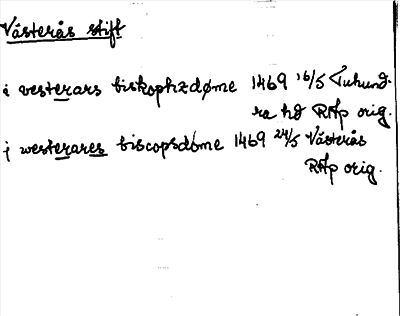 Västerås stift
i vesterars biskophzdøme 1469 16/5 Tuhund-
ra hd RAp orig.
j westerares biscopsdøme 1469 24/5 Västerås
RAp orig.